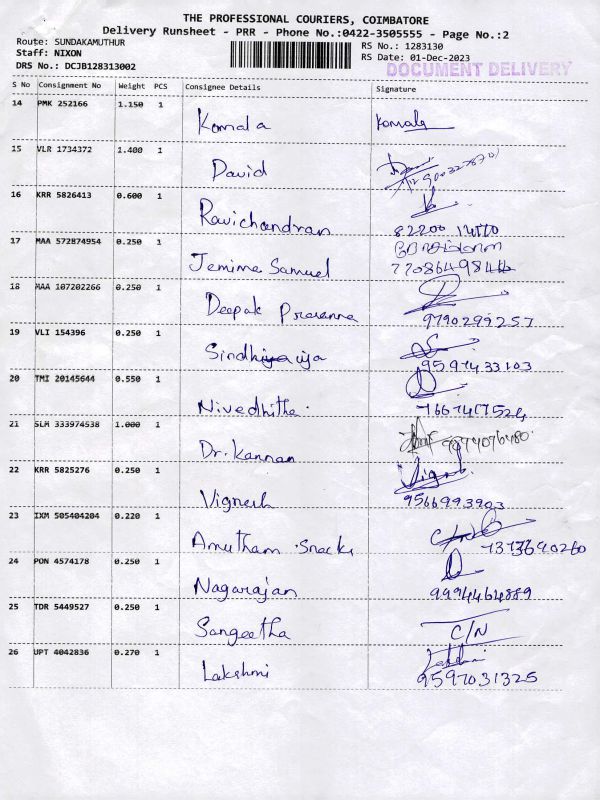 THE PROFESSIONAL COURIERS, COIMBATORE
Delivery Runsheet - PRR - Phone No.:0422-3505555 - Page No.:2
Route: SUNDAKAMUTHUR
Staff: NIXON
DRS No.: DCJB128313002
RS No.: 1283130
RS Date: 01-Dec-2023
DOCUMENT DELIVERY
S No Consignment No Weight PCS Consignee Details Signature
14 PMK 252166 1.150 1
Komala Komala
15 VLR 1734372 1.400 1
David
16 KRR 5826413 0.600 1
Ravichandran
17 MAA 572874954 0.250 1
Jemima Samuel
18 MAA 107202266 0.250 1
Deepak Prasanna 9790299257
19 VLI 154396 0.250 1
Sindhiya 9597433103
20 TMI 20145644 0.550 1
Nivedhitha.
21 SLM 333974538 1.000 1
Dr. Kannan
22 KRR 5825276 0.250 1
Vignesh 9566993903
23 IXM 505404204 0.220 1
Amutham Snacks 7373690260
24 PON 4574178 0.250 1
Nagarajan 9994464889
25 TDR 5449527 0.250 1
Sangeetha C/N
26 UPT 4042836 0.270 1
Lakshmi 9597031325